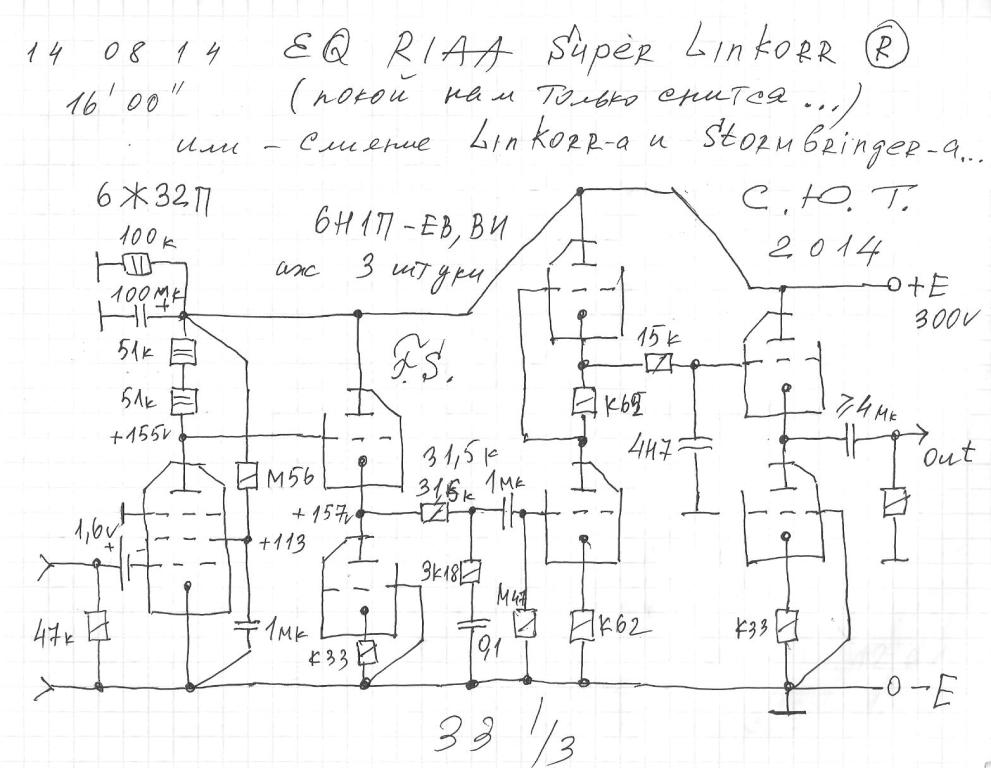 14 08 14 EQ RIAA Super Linkorr ®
16'00" (покой нам только снится...)
или - слияние Linkorr-а и Stormbringer-а...
6Ж32П
6Н1П-ЕВ, ВИ
аж 3 штуки
С.Ю.Т.
2014
100к
100мк
+
51к
51к
+155v
F.S.
15к
+E
300v
К62
4Н7
≥4мк
Out
М56
31,5к
31,5к
1мк
+157v
1,6v
+ -
+113
3К18
М47
47к
1мк
К33
0,1
К62
К33
-E
33 1/3